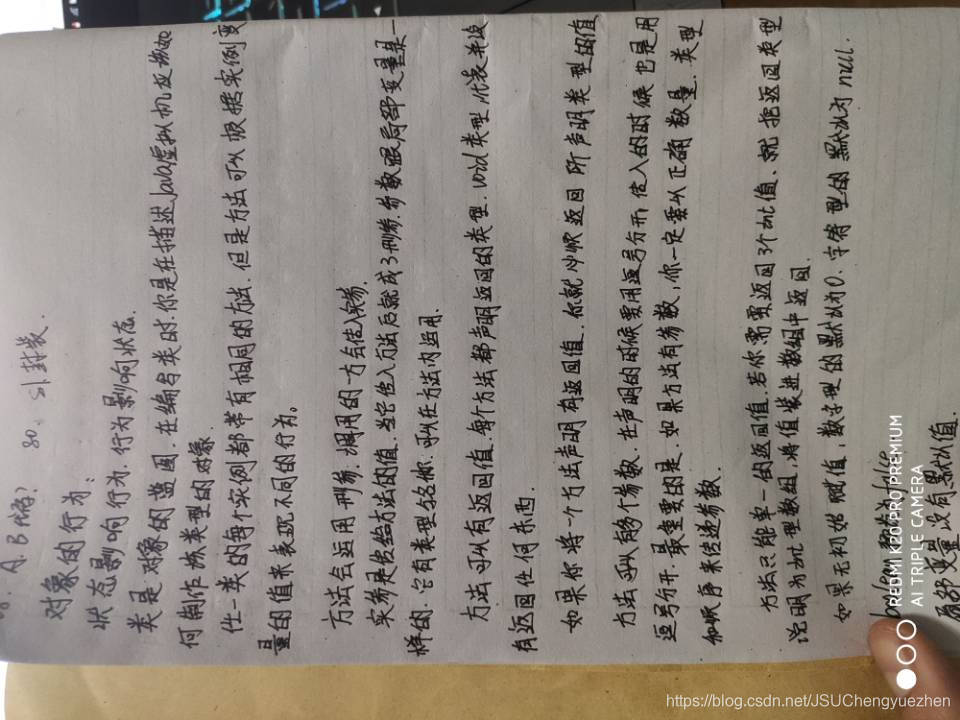 A. B 内存? 80、81 封装.
对象的行为:
状态影响行为. 行为影响状态.
类是对象的蓝图. 在编写类时, 你是在描述Java虚拟机应该如
何制作该类型的对象.
任一类的每个实例都带有相同的方法. 但是方法可以根据实例变
量的值来表现不同的行为。
方法会运用形参. 调用的一方会传入实参.
实参是传给方法的值. 当它传入方法后就成了形参. 参数跟局部变量是一
样的. 它有类型与名称. 可以在方法内运用.
方法可以有返回值. 每个方法都声明返回的类型. void类型代表并没
有返回任何东西.
如果你将一个方法声明有返回值. 你就必须返回所声明类型的值
方法可以有多个参数. 在声明的时候要用逗号分开, 传入的时候也是用
逗号分开. 最重要的是. 如果方法有参数, 你一定要以正确数量. 类型
和顺序来传递参数.
方法只能单一的返回值. 若你需要返回3个int值、就把返回类型
说明为int型数组, 将值装进数组中返回.
如果无初始赋值, 数字型的默认为0. 字符型的默认为null.
boolean 默认为 false
局部变量没有默认值.
REDMI K20 PRO PREMIUM
AI TRIPLE CAMERA
https://blog.csdn.net/JSUChengyuezhen